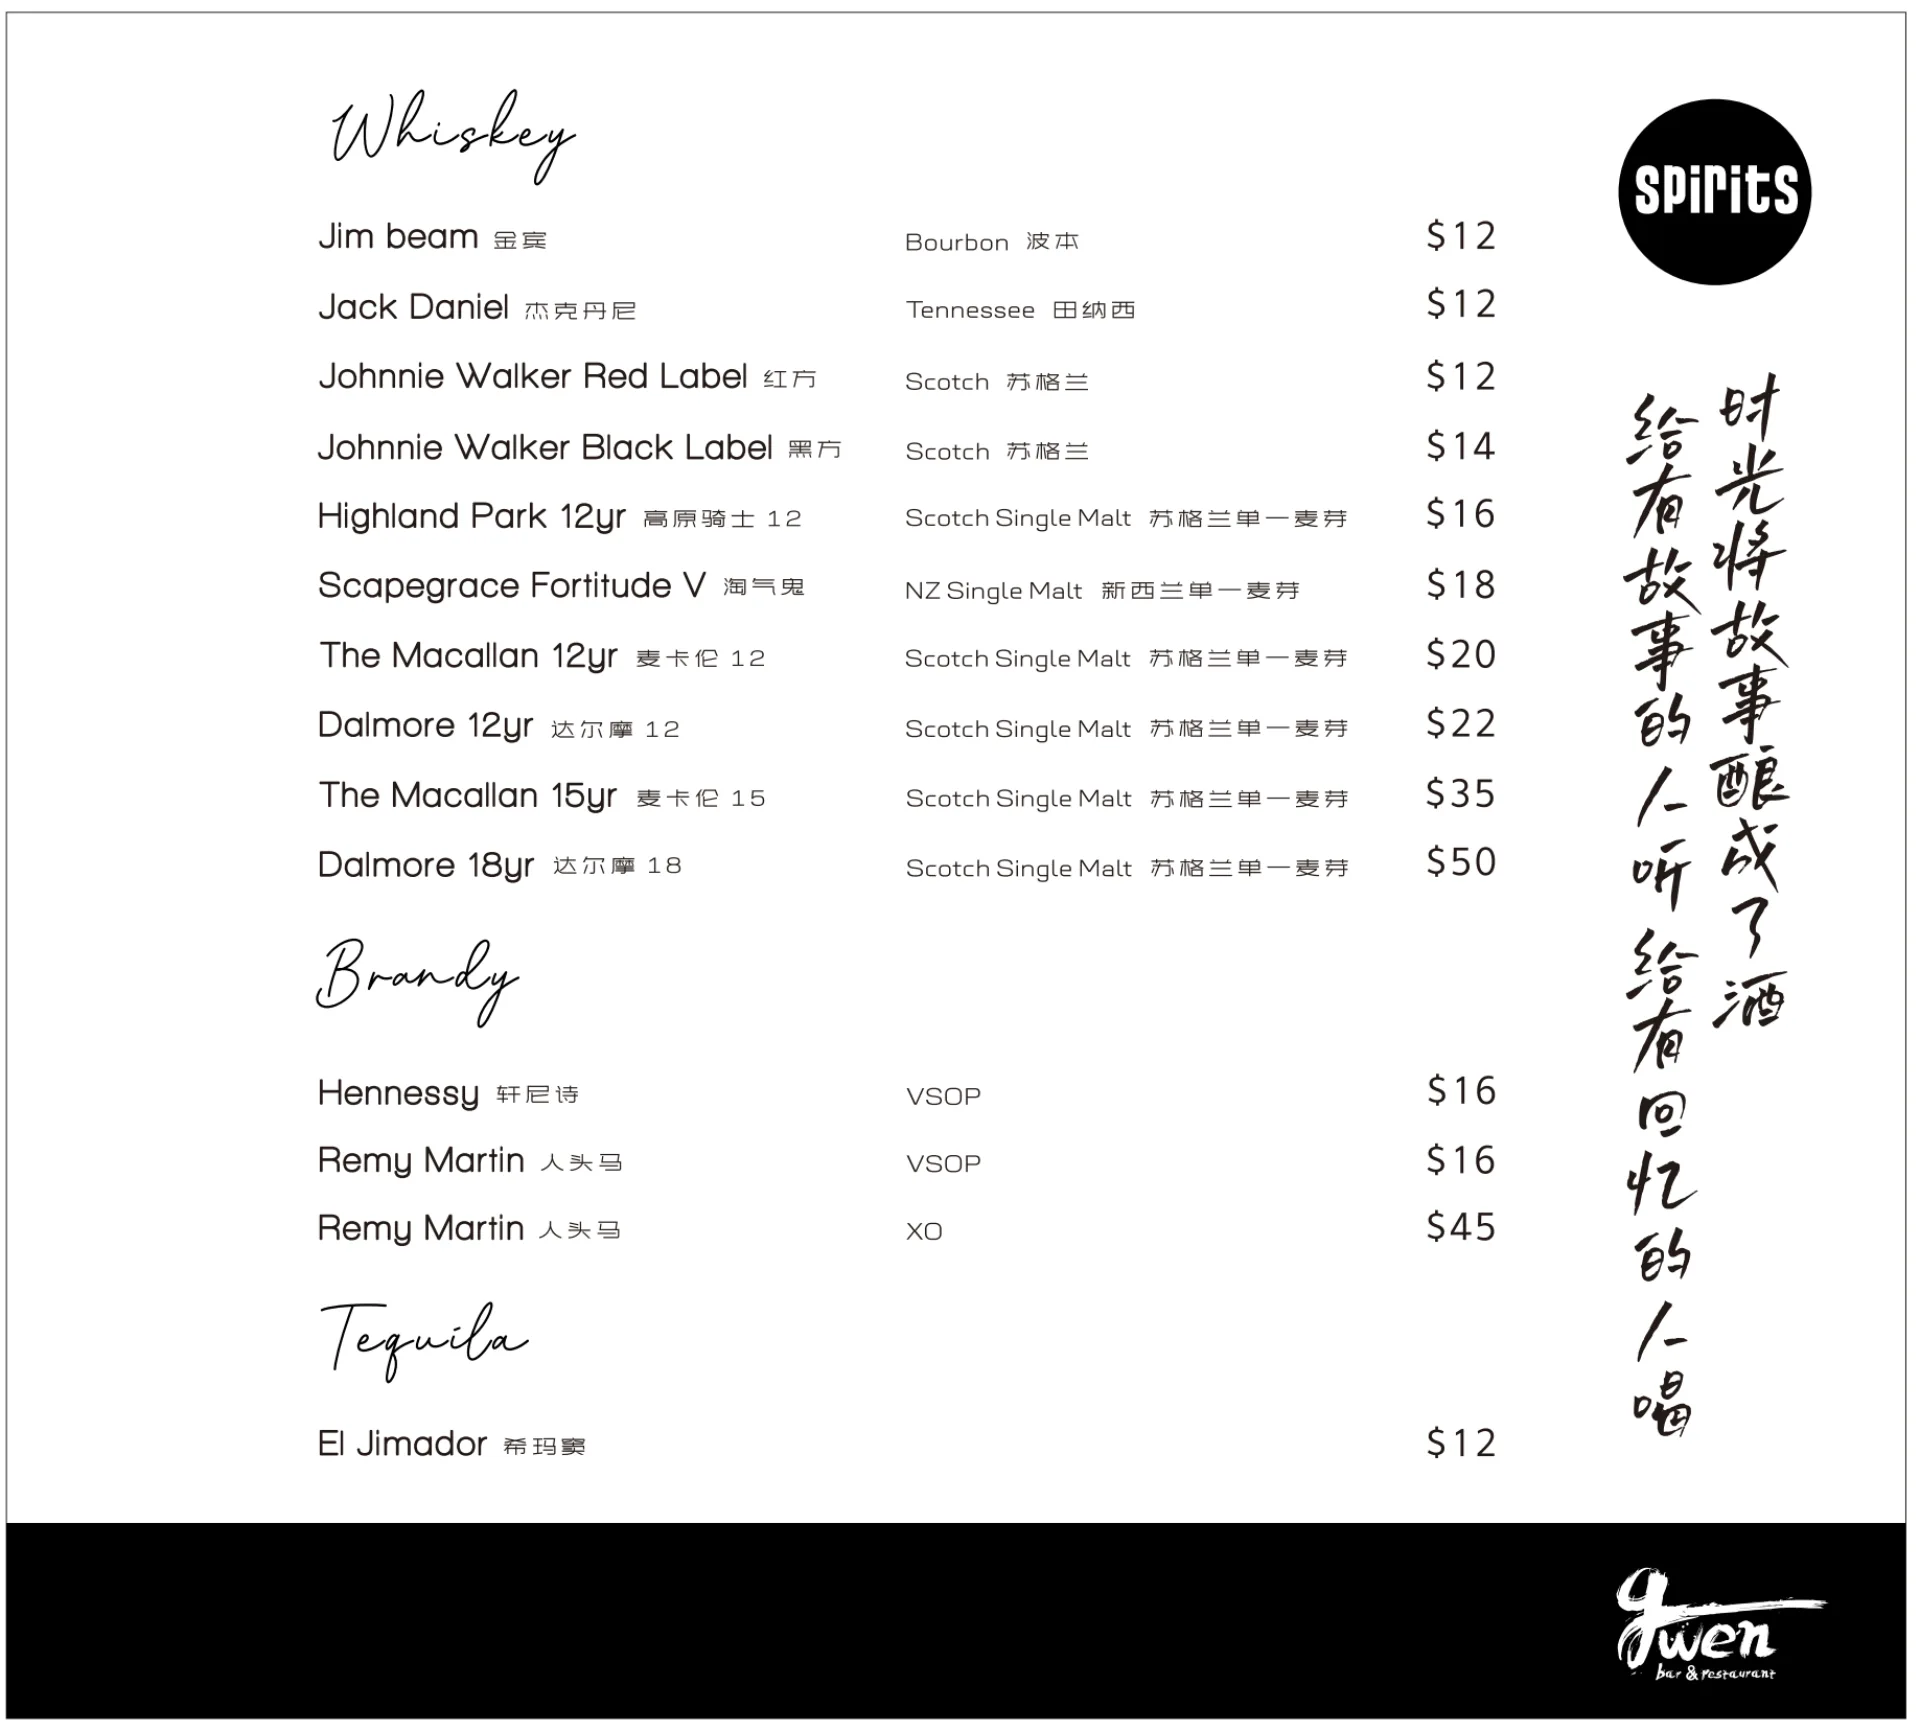 Whiskey
Jim beam 金宾 Bourbon 波本 $12
Jack Daniel 杰克丹尼 Tennessee 田纳西 $12
Johnnie Walker Red Label 红方 Scotch 苏格兰 $12
Johnnie Walker Black Label 黑方 Scotch 苏格兰 $14
Highland Park 12yr 高原骑士 12 Scotch Single Malt 苏格兰单一麦芽 $16
Scapegrace Fortitude V 淘气鬼 NZ Single Malt 新西兰单一麦芽 $18
The Macallan 12yr 麦卡伦 12 Scotch Single Malt 苏格兰单一麦芽 $20
Dalmore 12yr 达尔摩 12 Scotch Single Malt 苏格兰单一麦芽 $22
The Macallan 15yr 麦卡伦 15 Scotch Single Malt 苏格兰单一麦芽 $35
Dalmore 18yr 达尔摩 18 Scotch Single Malt 苏格兰单一麦芽 $50
Brandy
Hennessy 轩尼诗 VSOP $16
Remy Martin 人头马 VSOP $16
Remy Martin 人头马 XO $45
Tequila
El Jimador 希玛窦 $12
SPIRITS
时光将故事酿成了酒
给有故事的人听 给有回忆的人喝
gwen
bar & restaurant